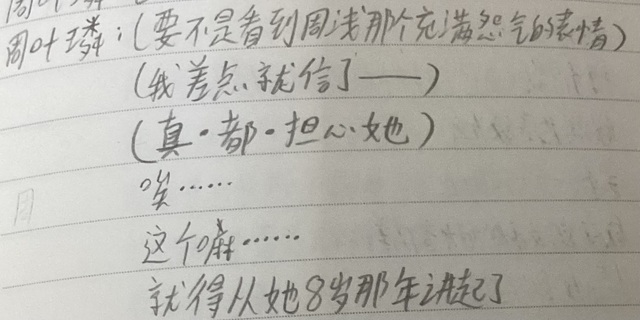 周叶璘：(要不是看到周浅那个充满怨气的表情)
(我差点就信了——)
(真·都·担心她)
唉……
这个嘛……
就得从她8岁那年讲起了